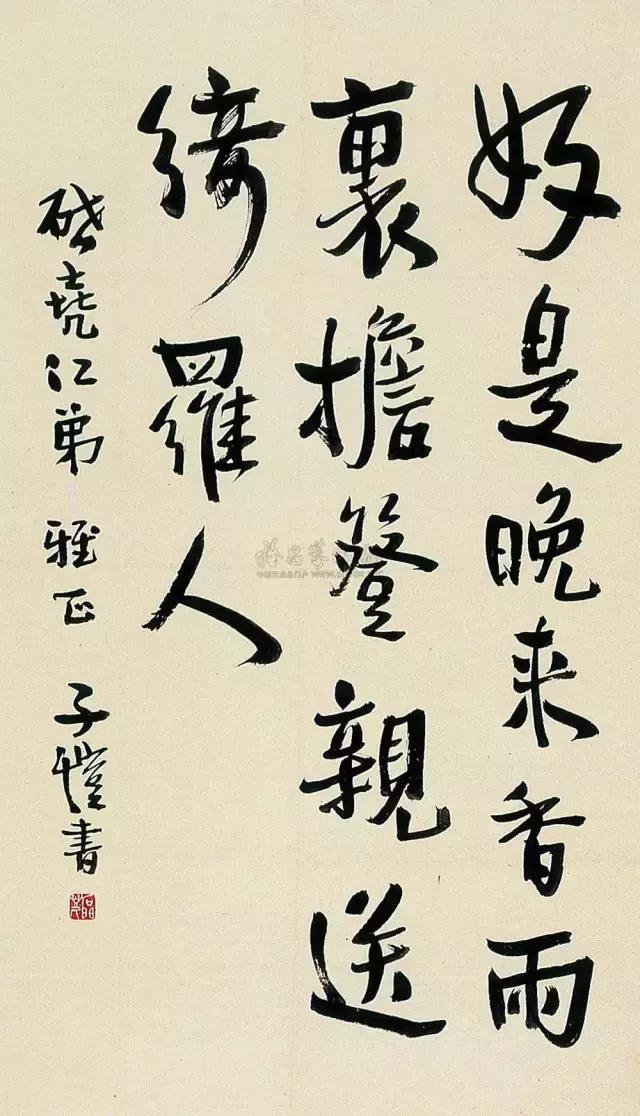 好是晚来香雨
裏擔簦親送
綺羅人
啟堯仁弟 雅正 子愷書